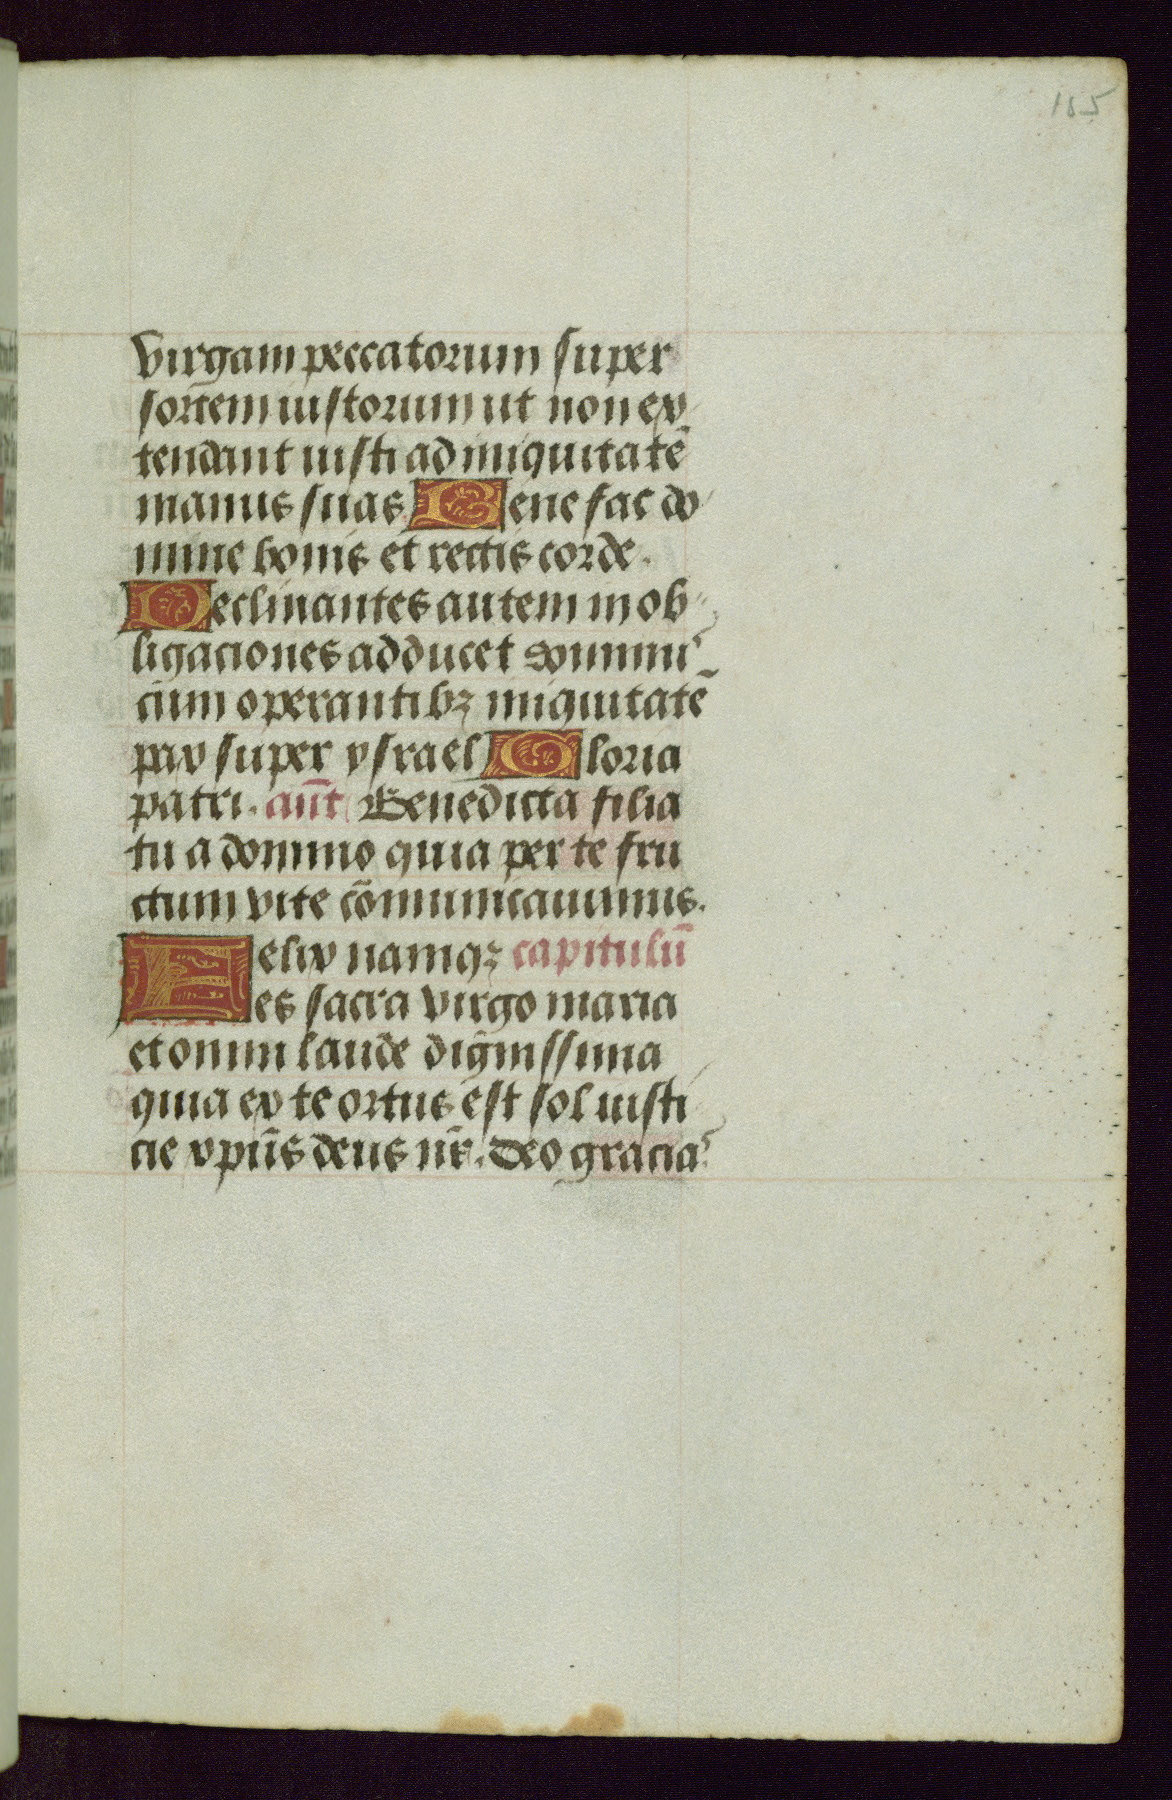 185
virgam peccatorum super
sortem iustorum ut non ex-
tendant iusti ad iniquitatē
manus suas Bene fac do-
mine bonis et rectis corde.
Declinantes autem in ob-
ligaciones adducet dominus
cum operantibꝫ iniquitatē
pax super ysrael Gloria
patri. an̄t Benedicta filia
tu a domino quia per te fru
ctum vite cōmunicauimus.
Felix namqꝫ capitulū
es sacra virgo maria
et omni laude dignissima
quia ex te ortus est sol iusti-
cie xp̄us deus nr̄. Deo gracias